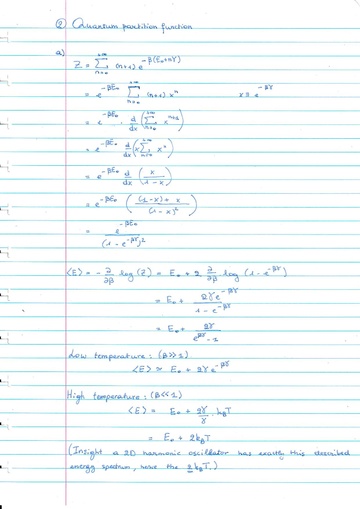 ② Quantum partition function
a)
Z = ∑_{n=0}^{+∞} (n+1) e^{-β(E₀+nγ)}
= e^{-βE₀} ∑_{n=0}^{+∞} (n+1) xⁿ x ≡ e^{-βγ}
= e^{-βE₀} · d/dx (∑_{n=0}^{+∞} x^{n+1})
= e^{-βE₀} d/dx (x ∑_{n=0}^{+∞} xⁿ)
= e^{-βE₀} d/dx (x/(1-x))
= e^{-βE₀} (((1-x)+x)/(1-x)²)
= e^{-βE₀}/(1-e^{-βγ})²
⟨E⟩ = -∂/∂β log(Z) = E₀ + 2 ∂/∂β log(1-e^{-βγ})
= E₀ + 2γe^{-βγ}/(1-e^{-βγ})
= E₀ + 2γ/(e^{βγ}-1)
Low temperature: (β>>1)
⟨E⟩ ≈ E₀ + 2γe^{-βγ}
High temperature: (β<<1)
⟨E⟩ = E₀ + 2γ/γ · k_BT
= E₀ + 2k_BT
(Insight a 2D harmonic oscillator has exactly this described
energy spectrum, hence the 2k_BT.)